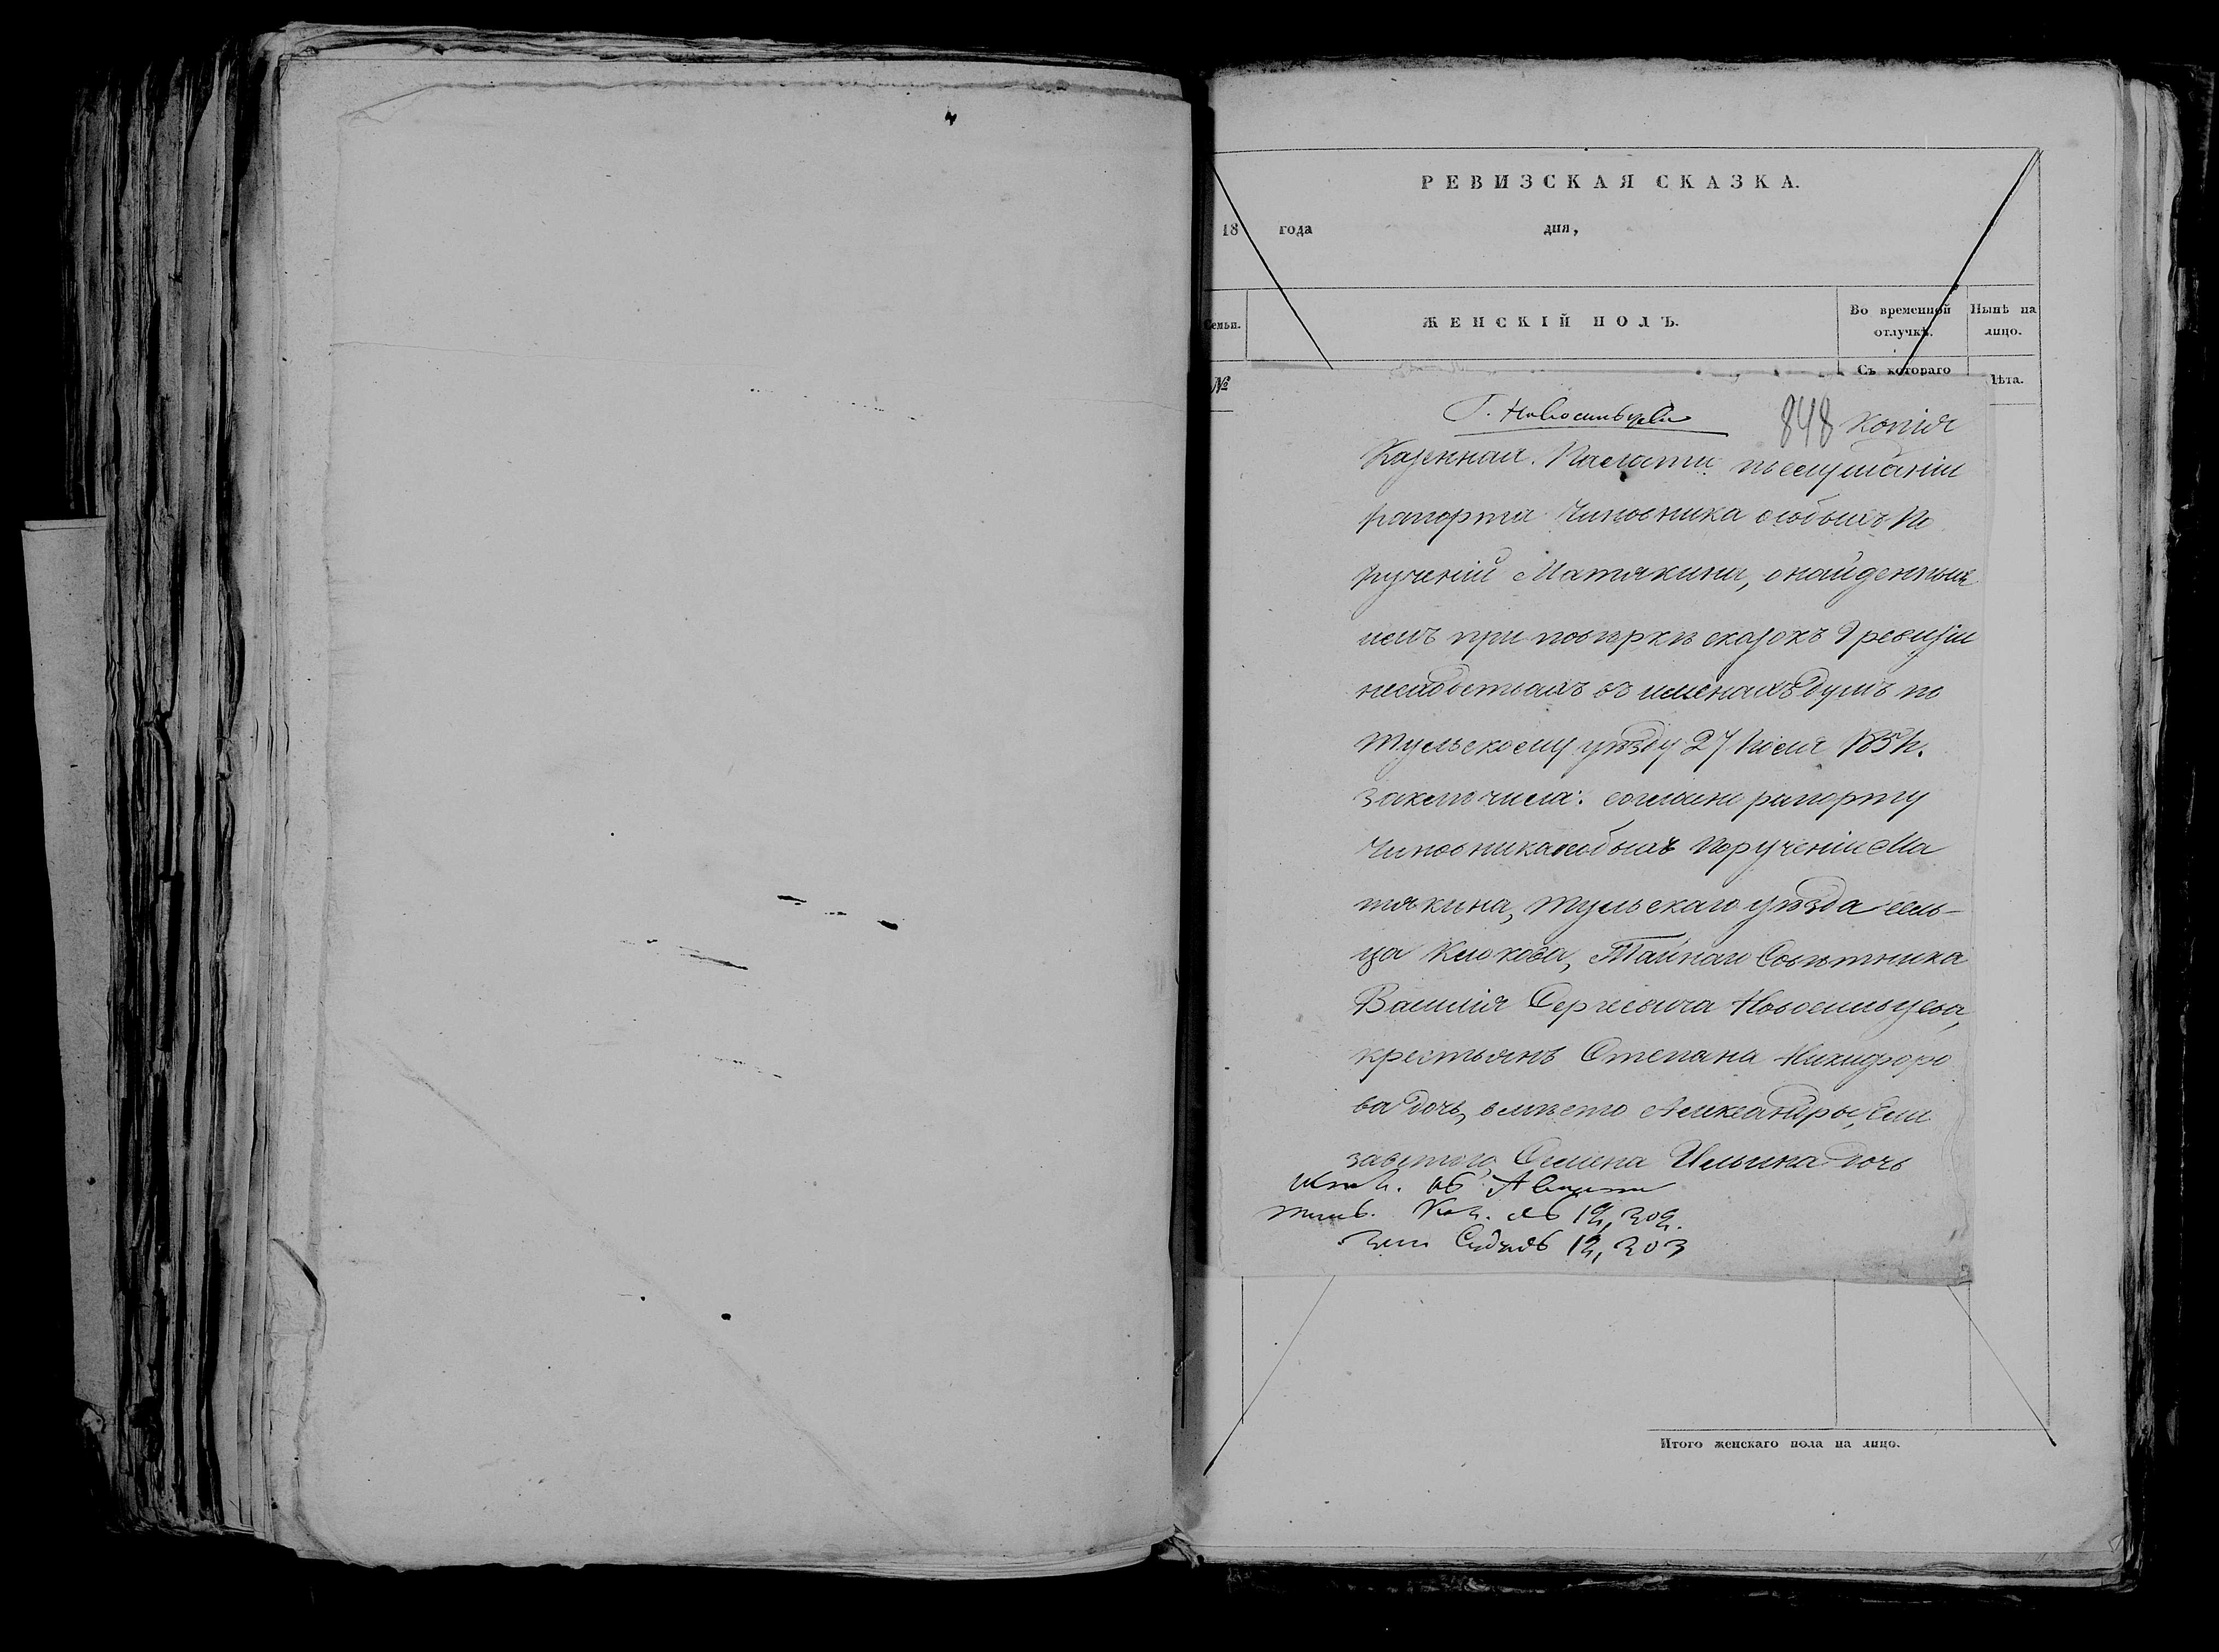 РЕВИЗСКАЯ СКАЗКА.
18 года дня,
Семьи.
ЖЕНСКІЙ ПОЛЪ.
Во временной отлучкѣ.
Нынѣ на лицо.
№
Съ котораго
Лѣта.
Г. Новосильцева
848 Копія
Казенная Палата по слушаніи
рапорта чиновника особыхъ По
рученій Матякина, о найденныхъ
имъ при повѣркѣ сказокъ 9 ревизіи
несходствахъ въ именахъ душъ по
Тульскому уѣзду 27 Іюля
заключила: согласно рапорту
чиновника особыхъ порученій Ма
тякина, Тульскаго уѣзда сель-
ца Клокова, Тайнаго Совѣтника
Василія Сергѣевича Новосильцева,
крестьянъ Степана Никифоро
ва дочь, вмѣсто Александры, Ели
заветою, Семена Ильина дочь
Августа
12,302.
12,303
Итого женскаго пола на лицо.